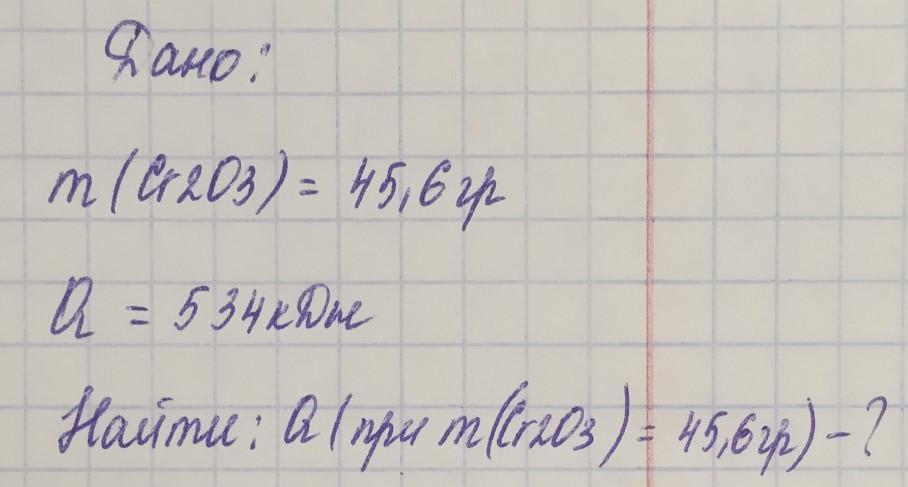 Дано:
m(Cr2O3) = 45,6 гр
Q = 534 кДж
Найти: Q(при m(Cr2O3) = 45,6 гр) - ?